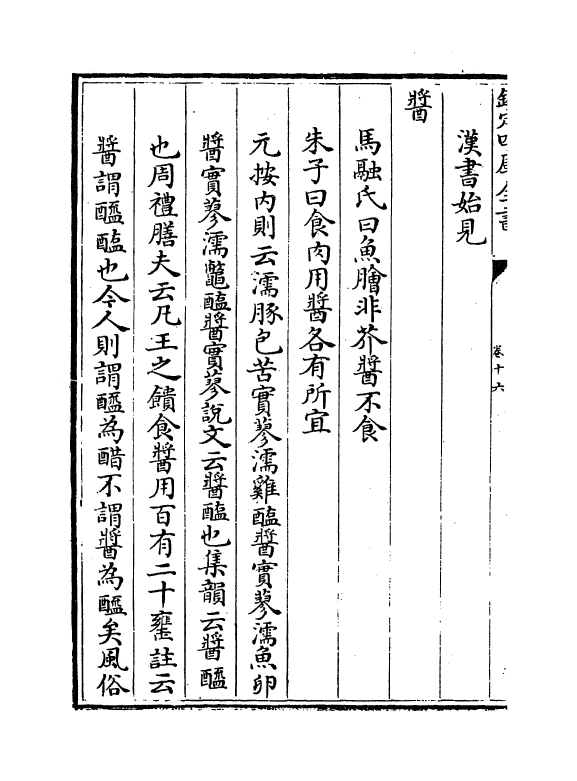 欽定四庫全書
卷十六
漢書始見
醬
馬融氏曰魚膾非芥醬不食
朱子曰食肉用醬各有所宜
元按内則云濡豚包苦實蓼濡雞醢醬實蓼濡魚卵
醬實蓼濡鼈醢醬實蓼說文云醬醢也集韻云醬醯
也周禮膳夫云凡王之饋食醬用百有二十罋註云
醬謂醯醢也今人則謂醯為醋不謂醬為醯矣風俗